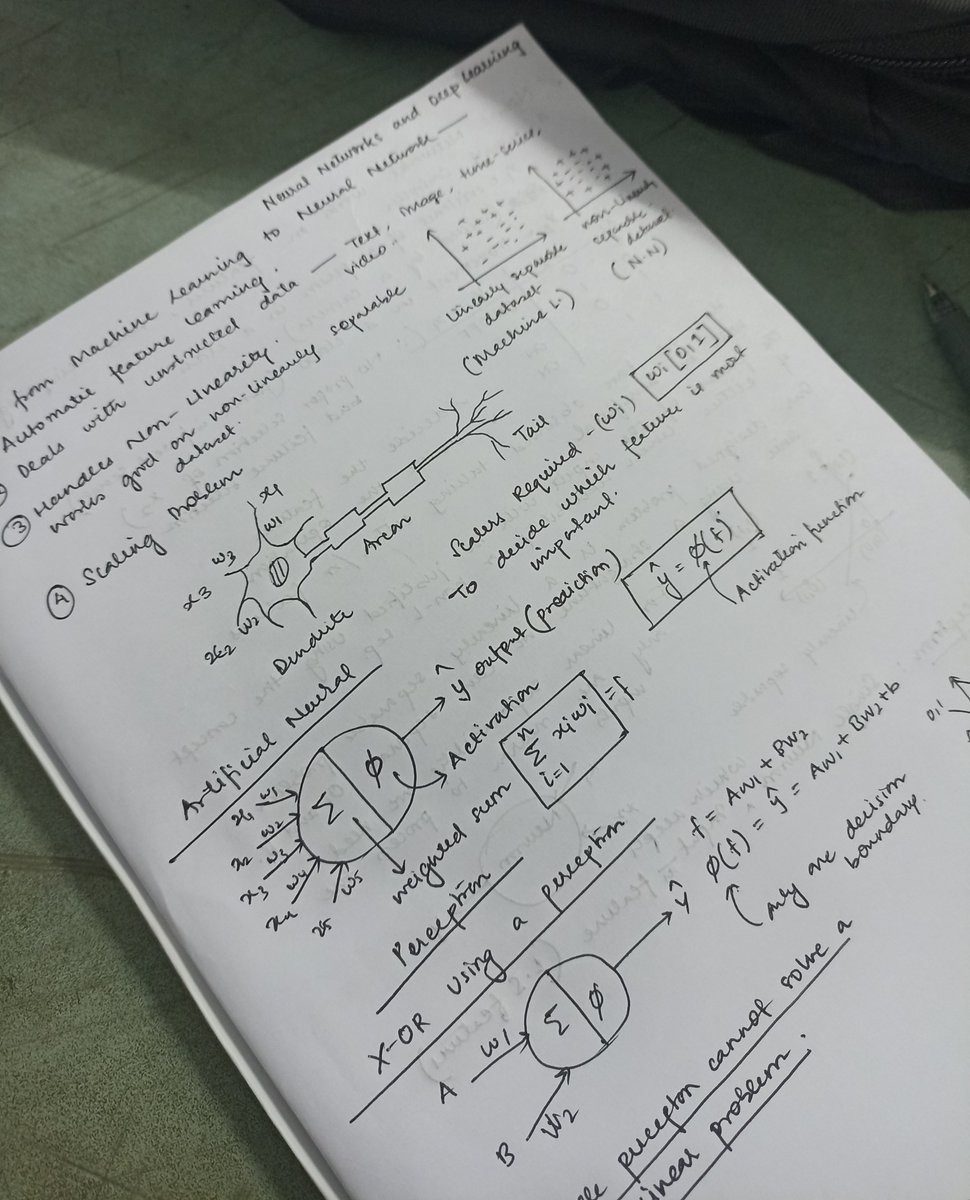 Neural Networks and Deep Learning
from Machine Learning to Neural Network —
Automatic feature learning.
Deals with unstructed data — Text, image, time-series,
video
③ Handles Non-Linearity.
works good on non-linearly separable
dataset.
linearly separable
dataset
(Machine L.)
non-linearly
separable
dataset
(N.N)
④ Scaling Problem
x1
w1
w3
x3
w2
x2
Dendrite
Axon
Tail
Scalers Required - (wi) wi[0,1]
To decide which feature is most
important.
Artificial Neural
ŷ output (prediction)
ŷ = φ(f)
Activation function
Σ φ
Activation
weighed sum
n
Σ xi wi = f
i=1
x1 w1
x2 w2
x3 w3
x4 w4
x5 w5
Perceptron
X-OR using a perceptron
f = Aw1 + Bw2
ŷ φ(f) = ŷ = Aw1 + Bw2 + b
only one decision
boundary.
Σ φ
A w1
B w2
percepton cannot solve a
linear problem.
0,1